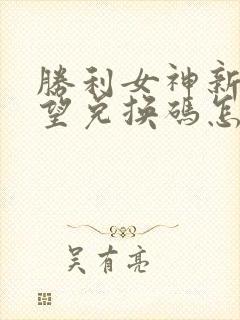 勝利女神新
望兌換碼怎
吴有亮